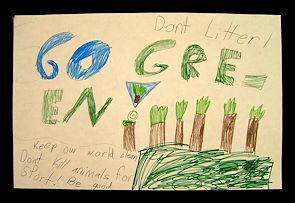 Dont Litter!
GO GRE-
EN
Keep our world clean
Dont kill animals for
Sport! Be good